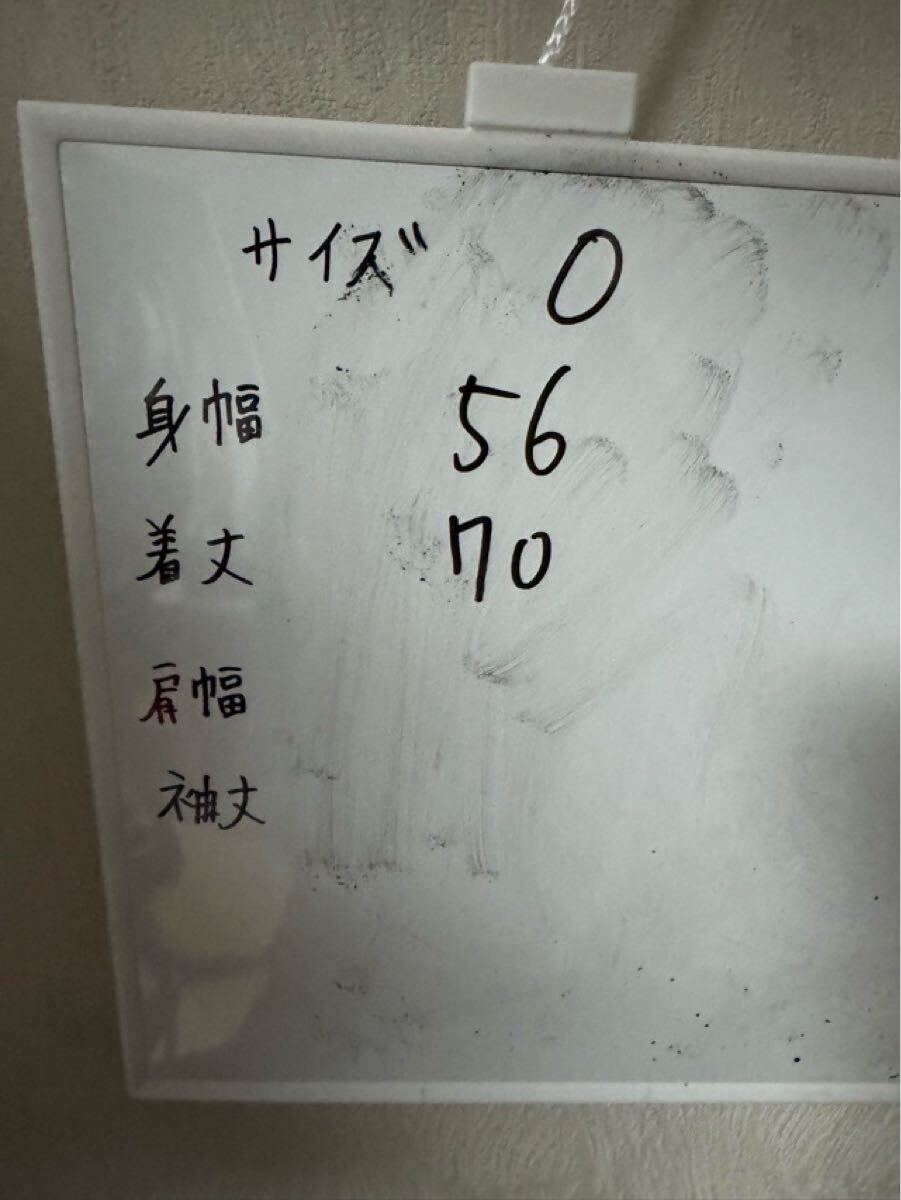 サイズ 0
身幅 56
着丈 70
肩幅
袖丈